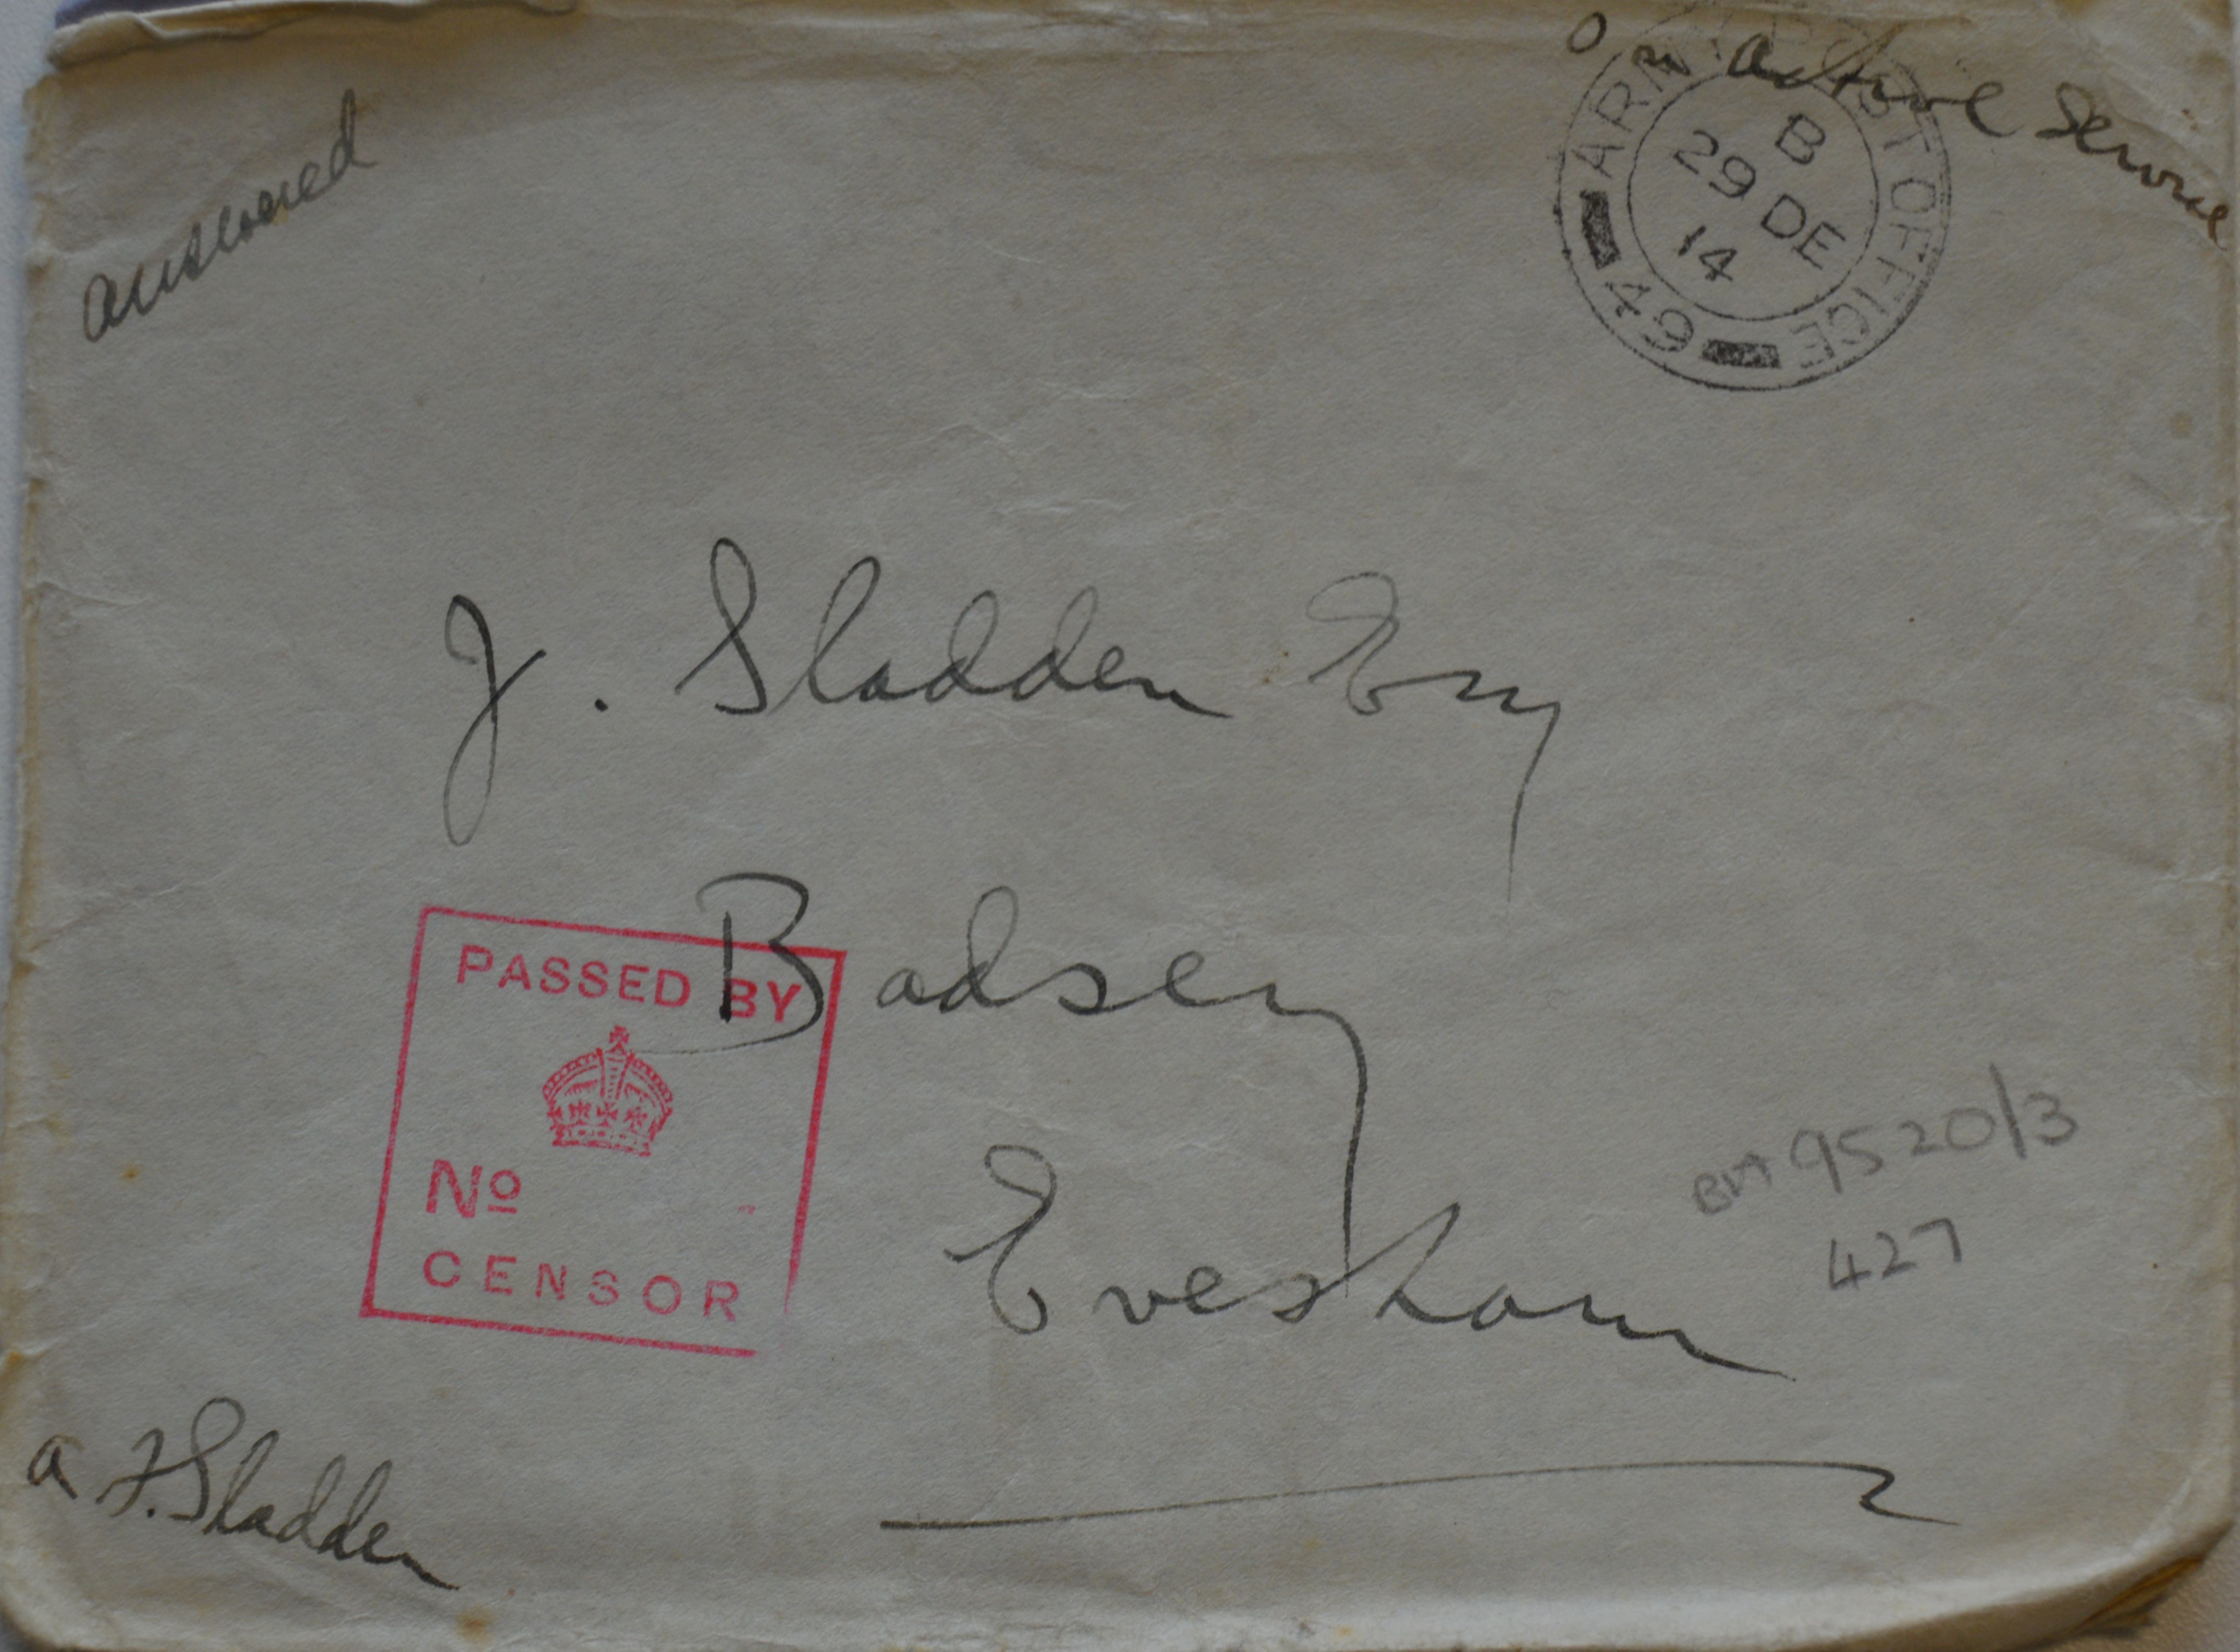 On active Service
answered
ARMY POST OFFICE
B
29 DE
14
49
J. Sladden Esq
Badsey
Evesham
PASSED BY
No
CENSOR
9520/3
427
A F. Sladden